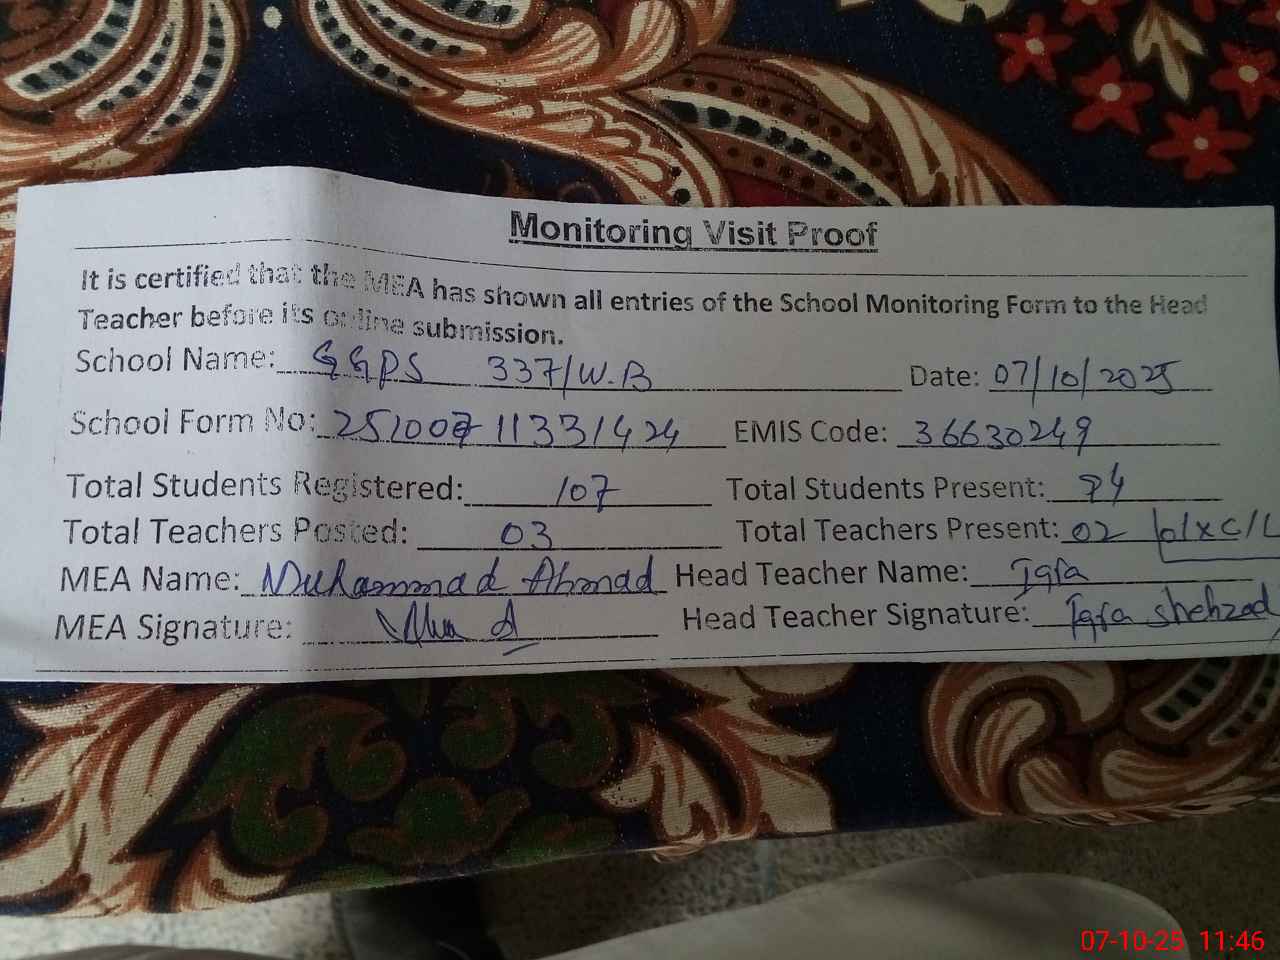 Monitoring Visit Proof
It is certified that the MEA has shown all entries of the School Monitoring Form to the Head
Teacher before its online submission.
School Name: GGPS 337/W.B Date: 07/10/2025
School Form No: 251007 11331424 EMIS Code: 36630249
Total Students Registered: 107 Total Students Present:
Total Teachers Posted: 03 Total Teachers Present: 02 01xC/L
MEA Name: Muhammad Ahmad Head Teacher Name: Iqra
MEA Signature: Head Teacher Signature: Iqra shehzad
07-10-25 11:46